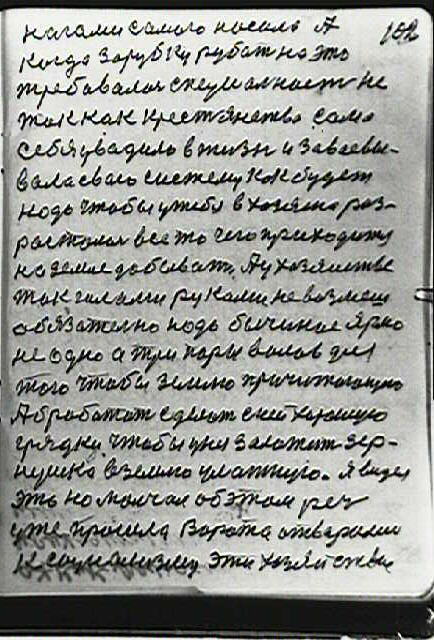 102
ногами самого носила А
когда зарубку рубат на это
требовалась специалност не
так как крестянство само
себя увадило в жизн и заваевы-
вала сваго систему как будет
надо чтобы у тебя в хозяина раз-
росталась все то чего приходится
на земле добывать. А у хозяистве
так голыми руками не возмеш
обязателно надо бычиное ярмо
не одно а три пары валов для
того чтобы землю
Аброботат сделат с ней хорошую
грядку. чтобы у ней заложит зер-
нушко в землю. Я видел
это но молчал об этом реч
уже прошла Ворота атварали
к социализму эти хозяйства